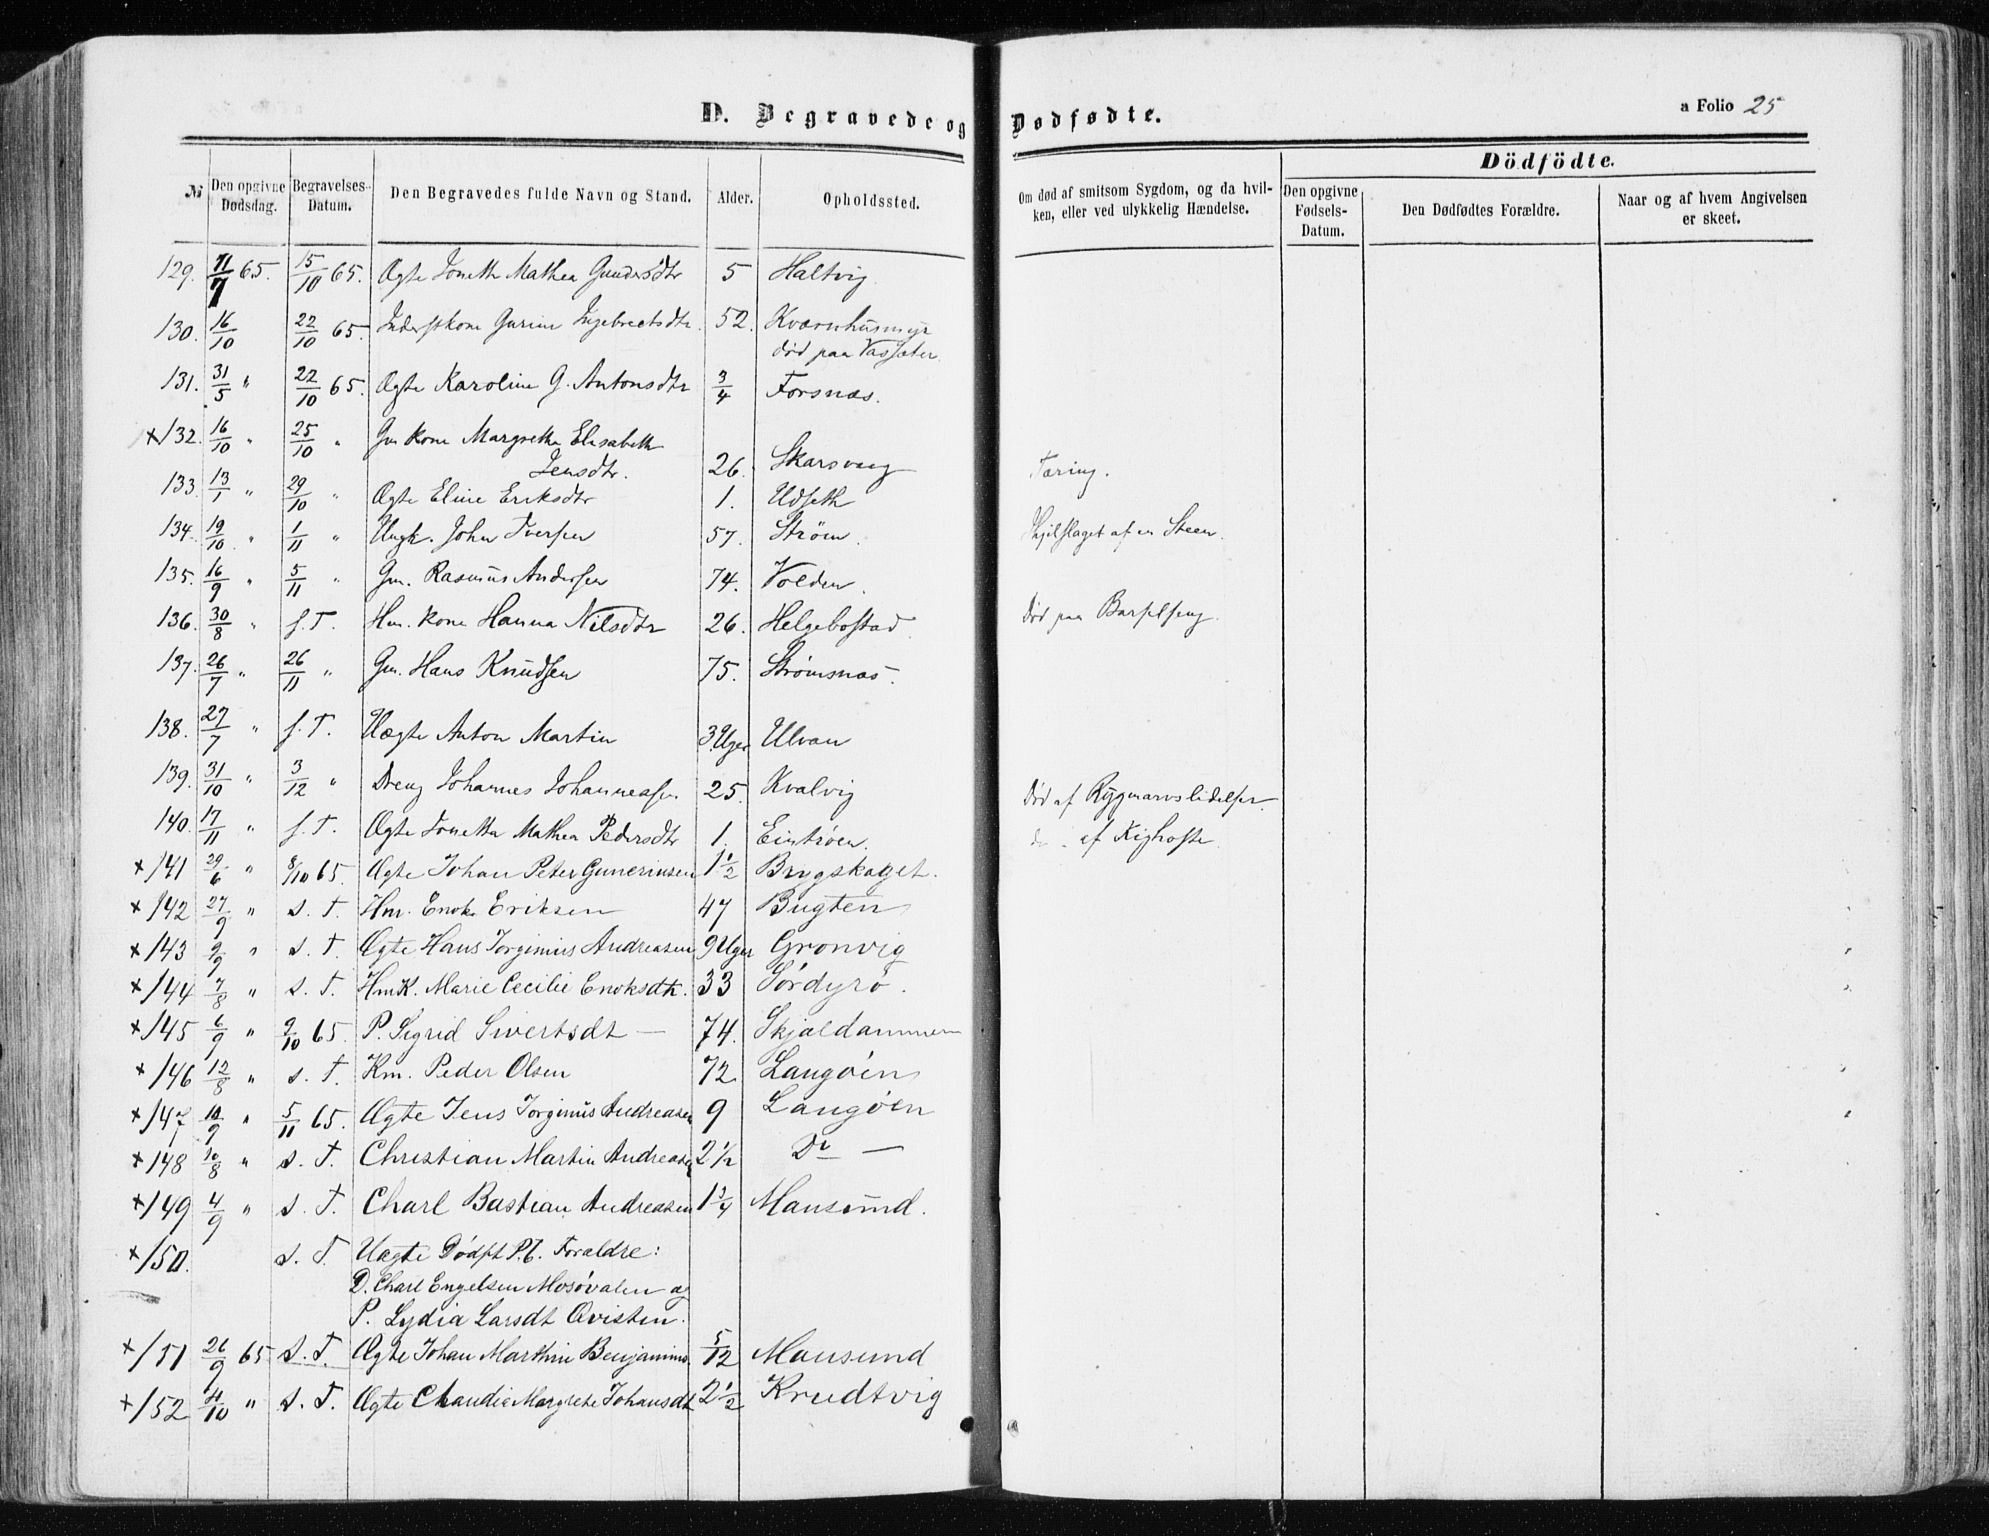 D. Begravede og Dødfødte.
a Folio 25
Dödfödte.
№ Den opgivne Dødsdag. Begravelses-Datum. Den Begravedes fulde Navn og Stand. Alder. Opholdssted. Om død af smitsom Sygdom, og da hvilken, eller ved ulykkelig Hændelse. Den opgivne Fødsels-Datum. Den Dødfødtes Forældre. Naar og af hvem Angivelsen er skeet.
129. 11/7 65. 15/10 65. Ægte Joneth Mathea Gundersdtr 5 Haltvig
130. 16/10 22/10 65. Inderstkone Gurine Ingebrectsdtr. 52. Kværnhusmyr
død paa Vassæter
131. 31/5 " 22/10 65 Ægte Karoline G. Antonsdtr 3/4 Forsnæs.
x 132. 16/10 " 25/10 " Gm kone Margrethe Elisabeth
Jensdtr. 26. Skarsvaag Tæring.
133. 13/1 " 29/10 " Ægte Eline Eriksdtr 1. Udseth
134. 19/10 " 1/11 " Ungk. John Iversen 57. Strøm. Ihjelslaget af en Steen.
135. 16/9 " 5/11 " Gm. Rasmus Andersen 74. Volden.
136. 30/8 " s. T. Hm. kone Hanna Nilsdtr 26. Helgebostad Død paa Barselseng.
137. 26/7 " 26/11 " Gm. Hans Knudsen 75. Strømsnæs.
138. 27/7 " s. T. Uægte Anton Martin 3 Uger Ulvan
139. 31/10 " 3/12 " Dreng Johannes Johannessen 25. Kvalvig Død af Rygmarvslidelser
140. 17/11 " s. T. Ægte Jonetta Mathea Pedersdtr 1. Eintrøen. do. af Kighoste
x 141 29/6 " 8/10 65. Ægte Johan Peter Gunerinsen 1 1/2 Brygskaget.
x 142 27/9 " s. T. Hm. Enok Eriksen 47 Bugten
x 143 9/9 " s. T. Ægte Hans Jorginius Andreasen 9 Uger Grønvig
x 144 7/8 " s. T. Hm K. Marie Cecilie Enoksdtr. 33 Sørdyrø.
x 145 6/9 " 9/10 65. P. Sigrid Sivertsdt — 74. Skjaldammen
x 146 12/8 " s. T. Km. Peder Olsen 72 Langøen
x 147 10/9 " 5/11 65. Ægte Jens Jorginus Andreasen 9 Langøen
x 148 10/8 " s. T. Christian Martin Andreasen 2 1/2 Do —
x 149 4/9 " s. T. Charl Bastian Andreasen 1 3/4 Mausund.
x 150. s. T. Uægte Dødft P.b. Forældre:
D. Charl Engelsen Mosøvalen og
P. Lydia Larsdt Qvisten.
x 151 26/9 65 s. T. Ægte Johan Marthin Benjamins. 5/12 Mausund
x 152 4/10 " s. T. Ægte Claudie Margrete Johansdt 2 1/2 Krudtvig